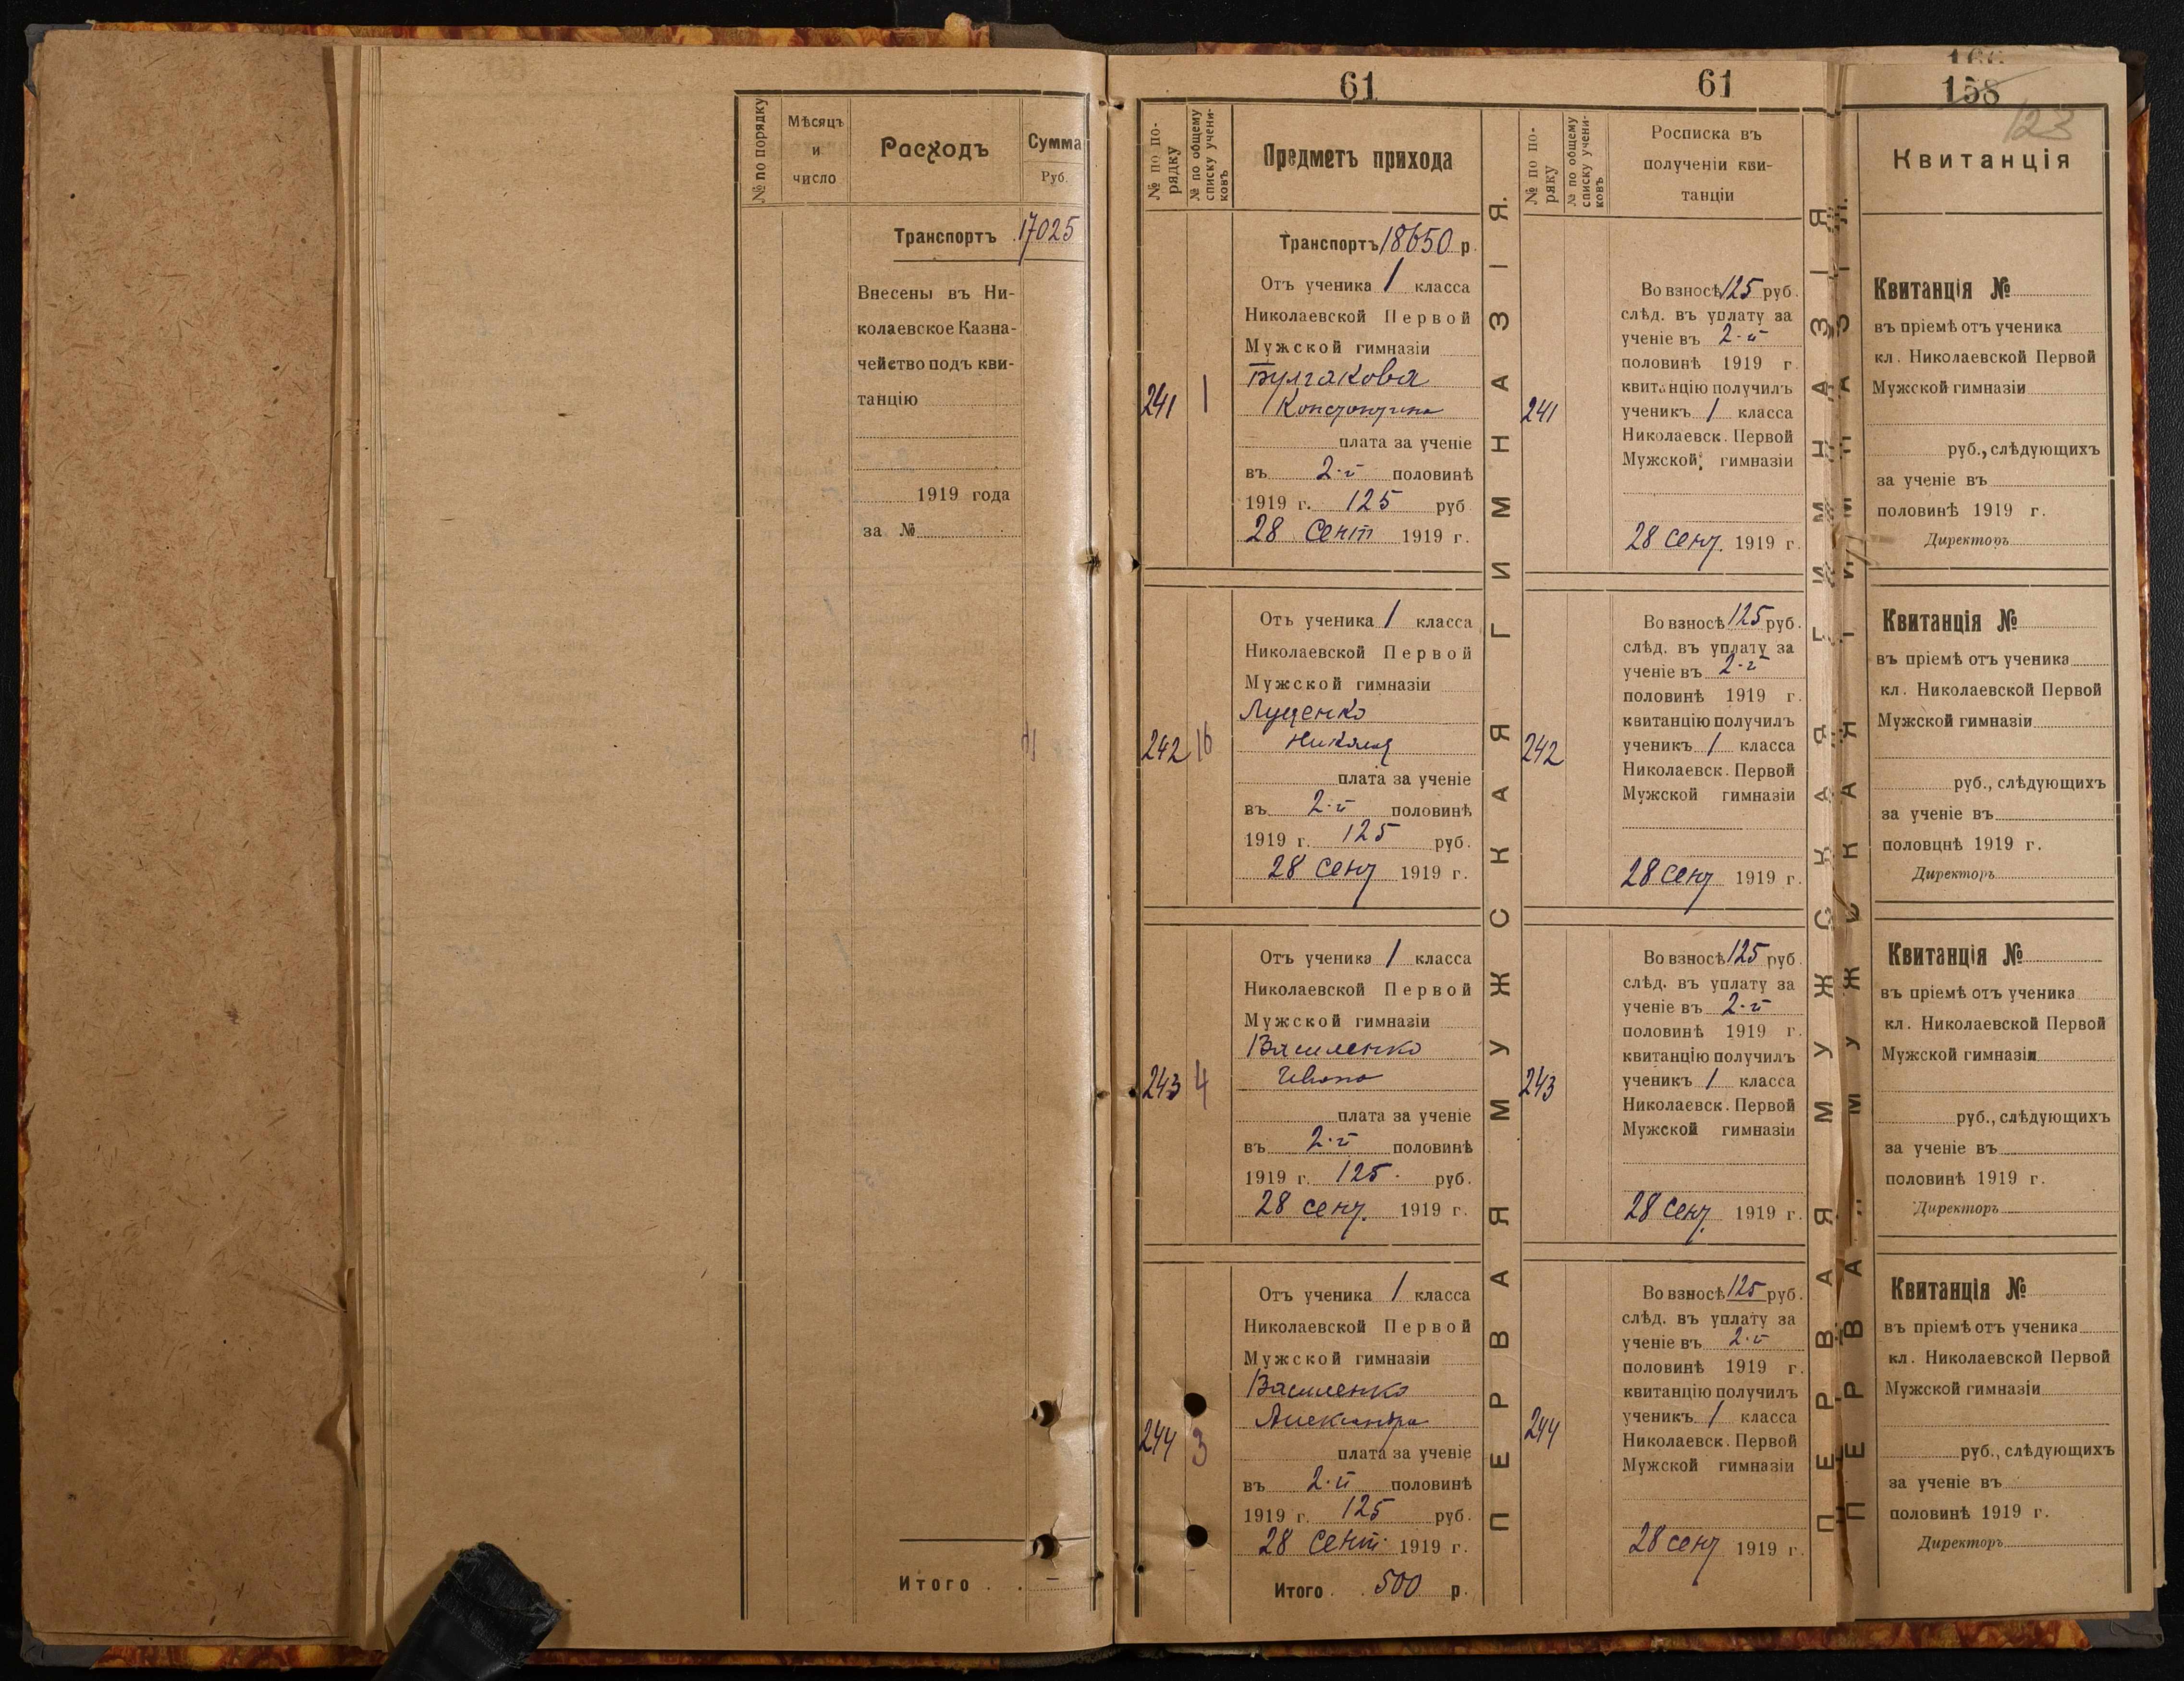 № по порядку
Мѣсяцъ
и
число
Расходъ
Сумма
Руб.
Транспортъ 17025
Внесены въ Ни-
колаевское Казна-
чейство подъ кви-
танцію
1919 года
за №
Итого . . —
61
№ по по-
рядку
№ по общему
списку учени-
ковъ
Предметъ прихода
Транспортъ 18650 р.
241
1
Отъ ученика 1 класса
Николаевской Первой
Мужской гимназіи
Булгакова
Константина
плата за ученіе
въ 2-й половинѣ
1919 г. 125 руб
28 Сент 1919 г.
242
16
Отъ ученика 1 класса
Николаевской Первой
Мужской гимназіи
Луценко
Николая
плата за ученіе
въ 2-й половинѣ
1919 г. 125 руб.
28 Сент 1919 г.
243
4
Отъ ученика 1 класса
Николаевской Первой
Мужской гимназіи
Василенко
Ивана
плата за ученіе
въ 2-й половинѣ
1919 г. 125 руб.
28 сент. 1919 г.
244
3
Отъ ученика 1 класса
Николаевской Первой
Мужской гимназіи
Василенко
Александра
плата за ученіе
въ 2-й половинѣ
1919 г. 125 руб.
28 Сент. 1919 г.
Итого . . 500 р.
ПЕРВАЯ МУЖСКАЯ ГИМНАЗІЯ.
61
№ по по-
ряку
№ по общему
списку учени-
ковъ
Росписка въ
полученіи кви-
танціи
241
Во взносѣ 125 руб.
слѣд. въ уплату за
ученіе въ 2-й
половинѣ 1919 г.
квитанцію получилъ
ученикъ 1 класса
Николаевск. Первой
Мужской гимназіи
28 сент. 1919 г.
242
Во взносѣ 125 руб.
слѣд. въ уплату за
ученіе въ 2-й
половинѣ 1919 г.
квитанцію получилъ
ученикъ 1 класса
Николаевск. Первой
Мужской гимназіи
28 сент 1919 г.
243
Во взносѣ 125 руб.
слѣд. въ уплату за
ученіе въ 2-й
половинѣ 1919 г.
квитанцію получилъ
ученикъ 1 класса
Николаевск. Первой
Мужской гимназіи
28 сент. 1919 г.
244
Во взносѣ 125 руб.
слѣд. въ уплату за
ученіе въ 2-й
половинѣ 1919 г.
квитанцію получилъ
ученикъ 1 класса
Николаевск. Первой
Мужской гимназіи
28 сент 1919 г.
ПЕРВАЯ МУЖСКАЯ ГИМНАЗІЯ
158
123
Квитанція
Квитанція №
въ пріемѣ отъ ученика
кл. Николаевской Первой
Мужской гимназіи
руб., слѣдующихъ
за ученіе въ
половинѣ 1919 г.
Директоръ
Квитанція №
въ пріемѣ отъ ученика
кл. Николаевской Первой
Мужской гимназіи
руб., слѣдующихъ
за ученіе въ
половцнѣ 1919 г.
Директоръ
Квитанція №
въ пріемѣ отъ ученика
кл. Николаевской Первой
Мужской гимназіи
руб., слѣдующихъ
за ученіе въ
половинѣ 1919 г.
Директоръ
Квитанція №
въ пріемѣ отъ ученика
кл. Николаевской Первой
Мужской гимназіи
руб., слѣдующихъ
за ученіе въ
половинѣ 1919 г.
Директоръ